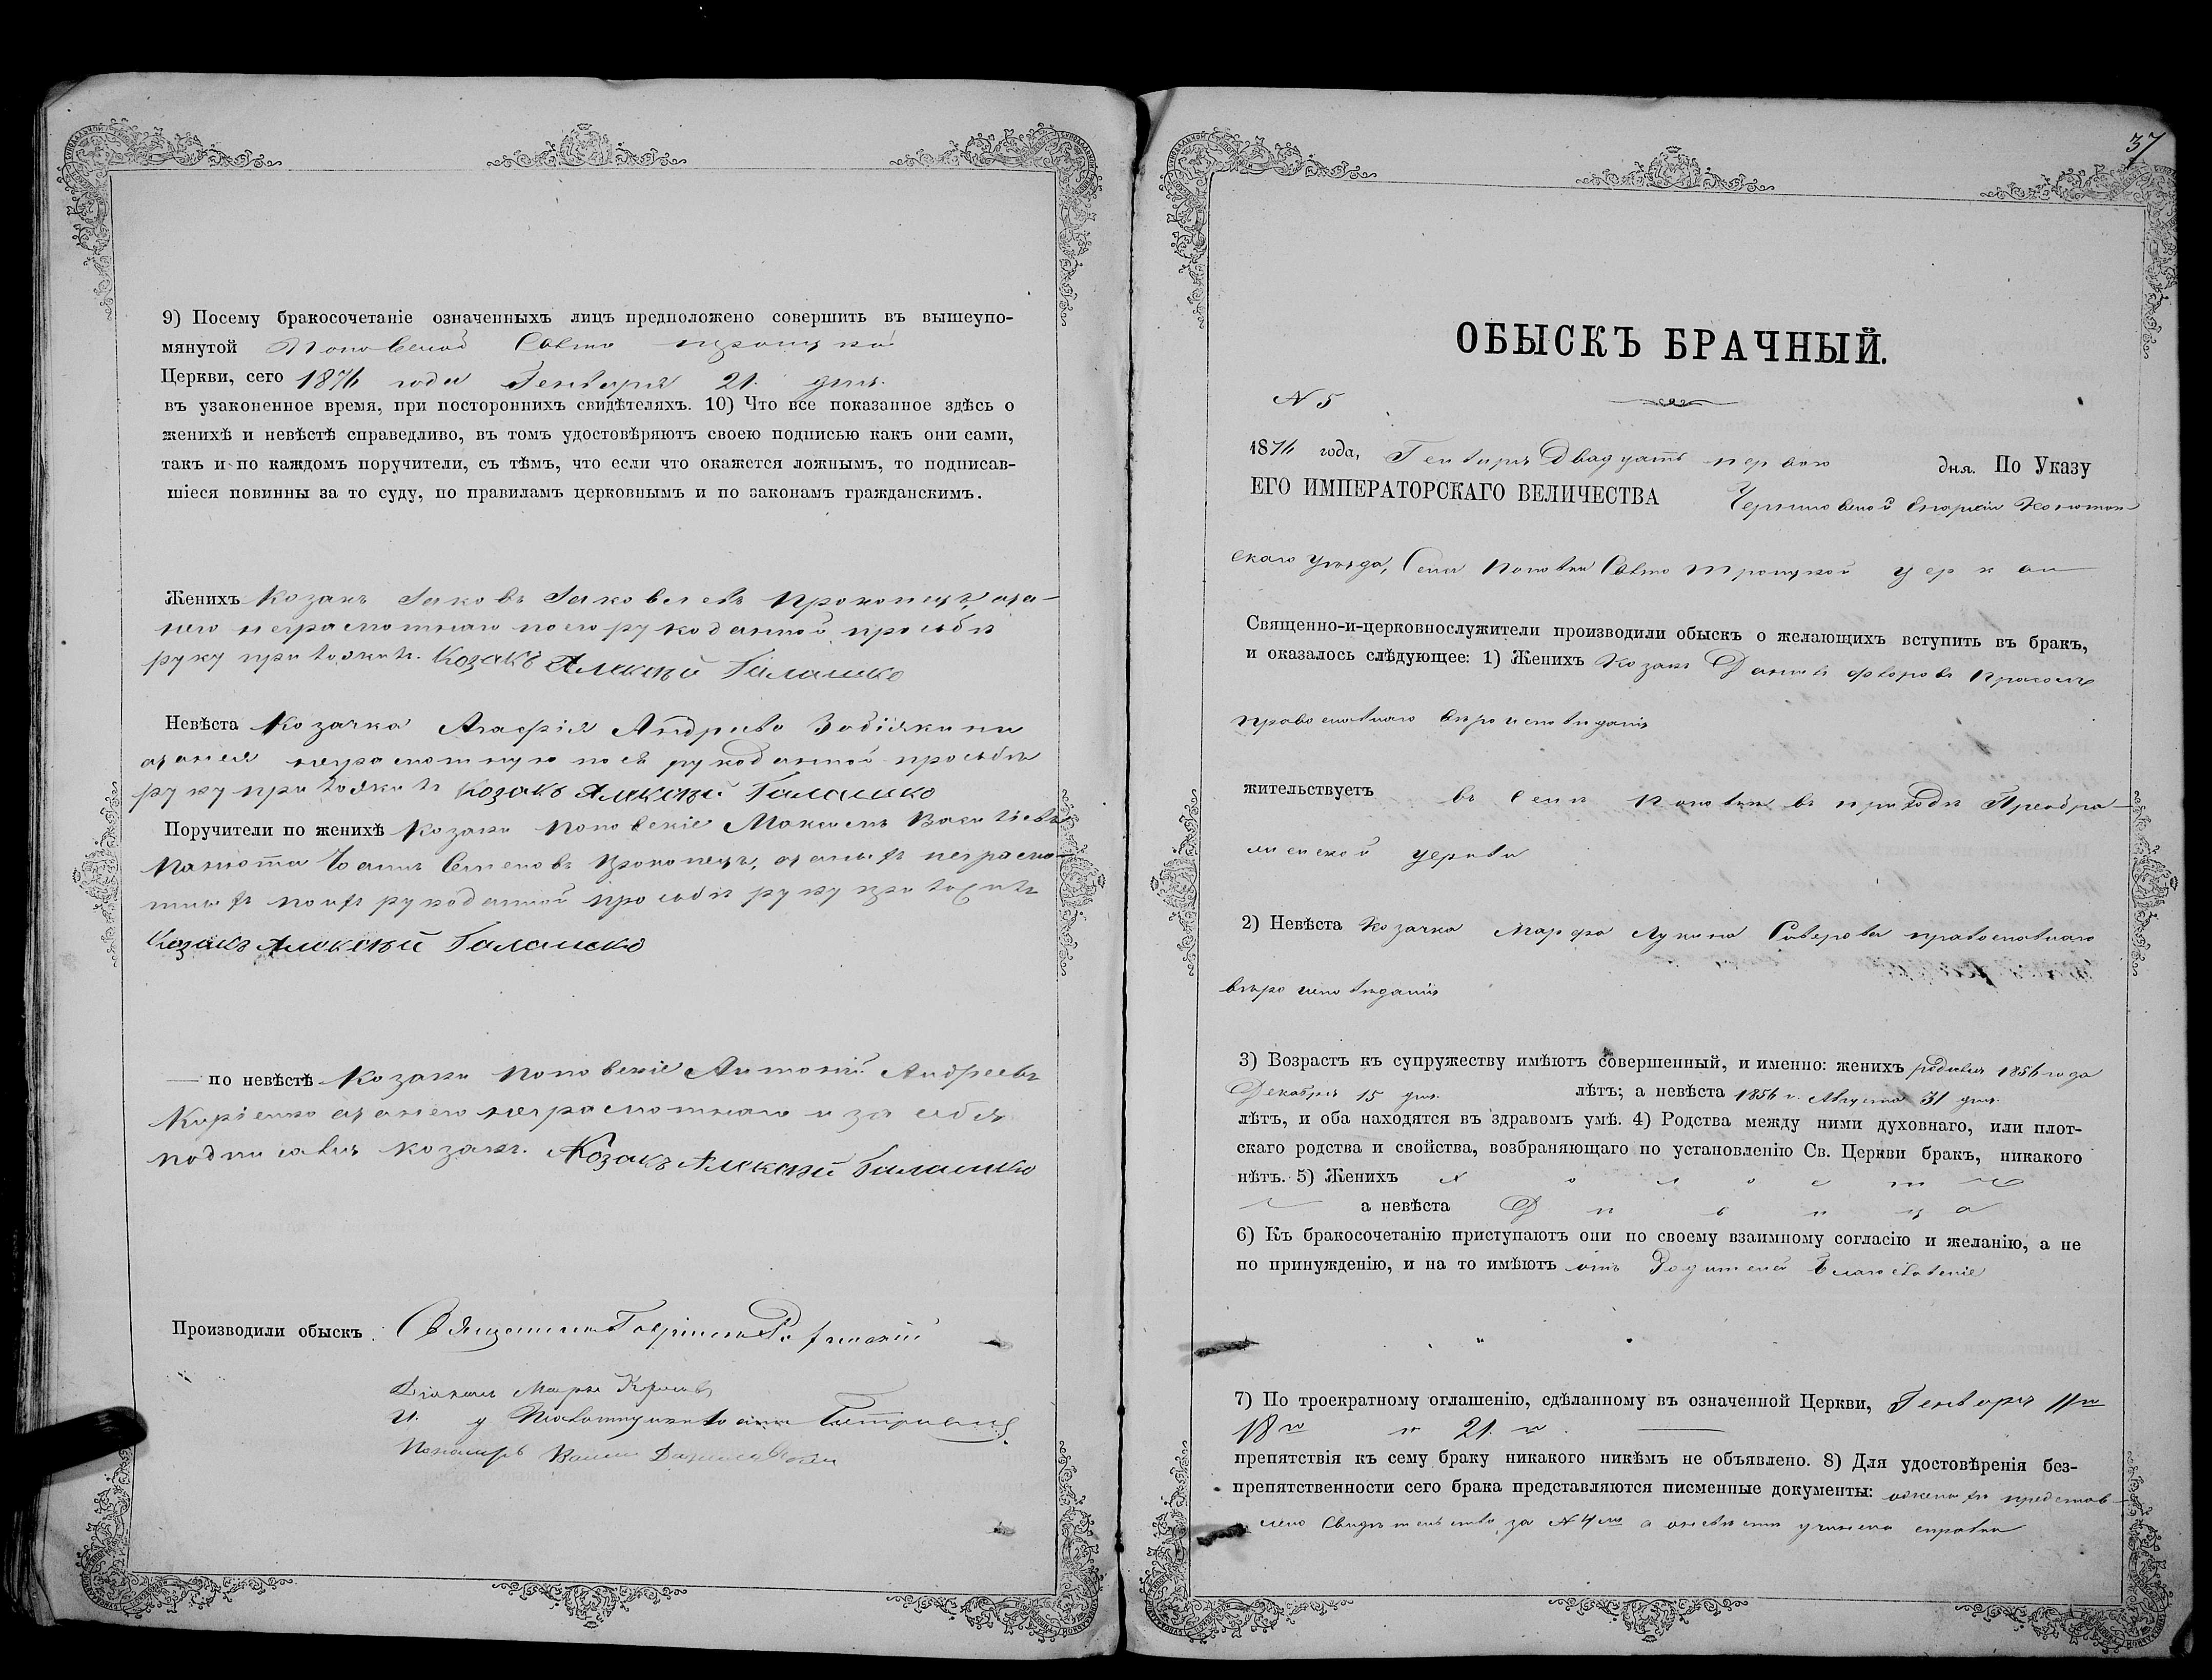 9) Посему бракосочетаніе означенныхъ лицъ предположено совершить въ вышеупо-
мянутой Поповской Свято троицкой
Церкви, сего 1876 года Генваря 21. дня.
въ узаконенное время, при постороннихъ свидѣтеляхъ. 10) Что все показанное здѣсь о
женихѣ и невѣстѣ справедливо, въ томъ удостовѣряютъ своею подписью какъ они сами,
такъ и по каждомъ поручители, съ тѣмъ, что если что окажется ложнымъ, то подписав-
шіеся повинны за то суду, по правиламъ церковнымъ и по законамъ гражданскимъ.
Женихъ Козакъ Іаковъ Іаковлевъ Прокопецъ, а за-
него неграмотнаго по его рукоданной прозьбѣ
руку приложилъ. Козакъ Алексѣй Галашко
Невѣста Козачка Агафія Андреева
а за нея неграмотную по её рукоданной прозьбѣ
руку приложилъ Козакъ Алексѣй Галашко
Поручители по женихѣ Козаки Поповскіе Максимъ
Семеновъ Прокопецъ, а за нихъ неграмо-
тныхъ по ихъ рукоданной прозьбѣ руку приложилъ
Козакъ Алексѣй Галашко
— по невѣстѣ Козаки Поповскіе Антоній Андреевъ
Киріенко а за него неграмотнаго и за себя
подписался козакъ. Козакъ Алексѣй Галашко
Производили обыскъ: Священникъ Гавріилъ
Діаконъ Маркъ
И. д
Пономарь
37
ОБЫСКЪ БРАЧНЫЙ.
N 5
1876 года, Генваря Двадцать перваго дня. По Указу
ЕГО ИМПЕРАТОРСКАГО ВЕЛИЧЕСТВА Черниговской Епархіи Конотоп
скаго уѣзда, Села Поповки Свято троицкой церкви
Священно-и-церковнослужители производили обыскъ о желающихъ вступить въ бракъ,
и оказалось слѣдующее: 1) Женихъ Козакъ Даніилъ Ѳедоровъ
православнаго вѣроисповѣданія
жительствуетъ въ селѣ Поповкѣ въ приходѣ Преобра-
женской церкви
2) Невѣста козачка Марфа Лукина православнаго
вѣроисповѣданія
3) Возрастъ къ супружеству имѣютъ совершенный, и именно: женихъ родился 1856 года
Декабря 15 дня. лѣтъ; а невѣста 1856 г. Августа 31 дня.
лѣтъ, и оба находятся въ здравомъ умѣ. 4) Родства между ними духовнаго, или плот-
скаго родства и свойства, возбраняющаго по установленію Св. Церкви бракъ, никакого
нѣтъ. 5) Женихъ Холостъ
а невѣста Дѣвица
6) Къ бракосочетанію приступаютъ они по своему взаимному согласію и желанію, а не
по принужденію, и на то имѣютъ отъ Родителей благословеніе
7) По троекратному оглашенію, сдѣланному въ означенной Церкви, Генваря 11го
18го и 21. го
препятствія къ сему браку никакого никѣмъ не объявлено. 8) Для удостовѣренія без-
препятственности сего брака представляются писменные документы: о женихѣ представ-
лено Свидѣтельство за N 4мъ а о невѣстѣ учинена справка